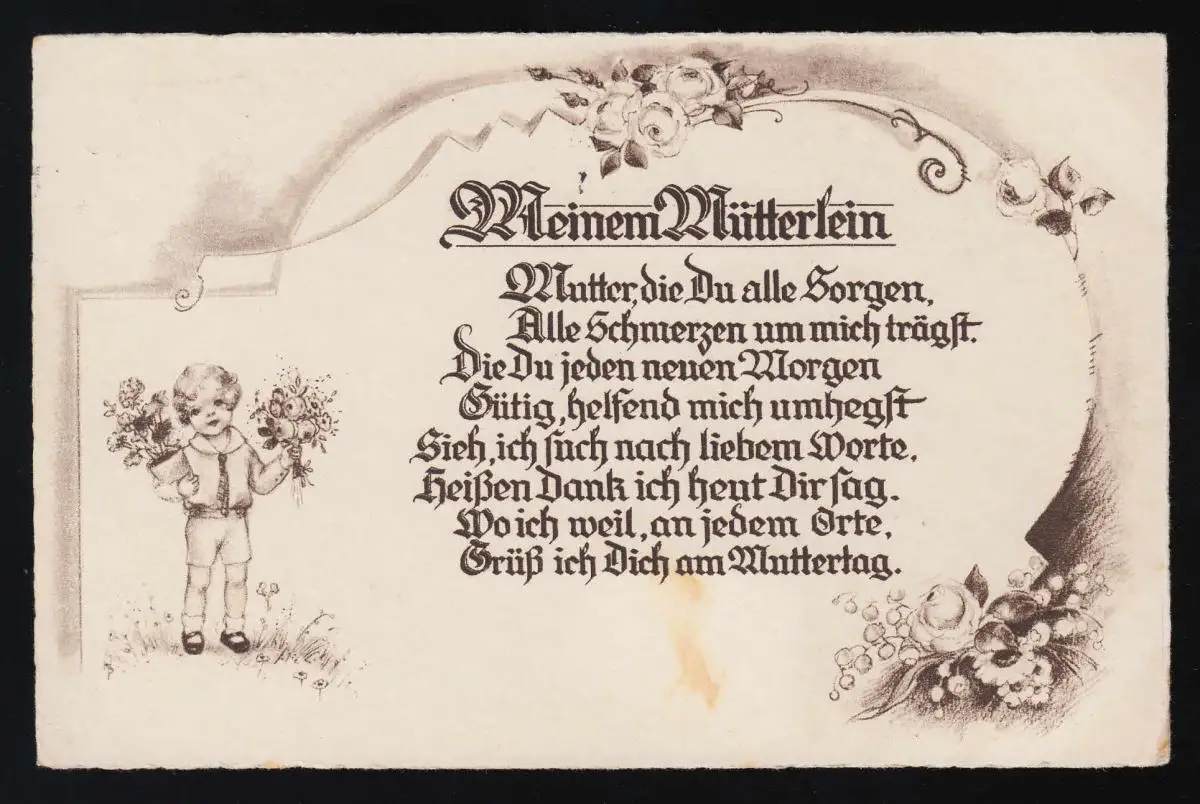 Meinem Mütterlein
Mutter, die Du alle Sorgen,
Alle Schmerzen um mich trägst.
Die Du jeden neuen Morgen
Gütig, helfend mich umhegst
Sieh, ich such nach liebem Worte,
Heißen Dank ich heut Dir sag.
Wo ich weil, an jedem Orte,
Grüß ich Dich am Muttertag.